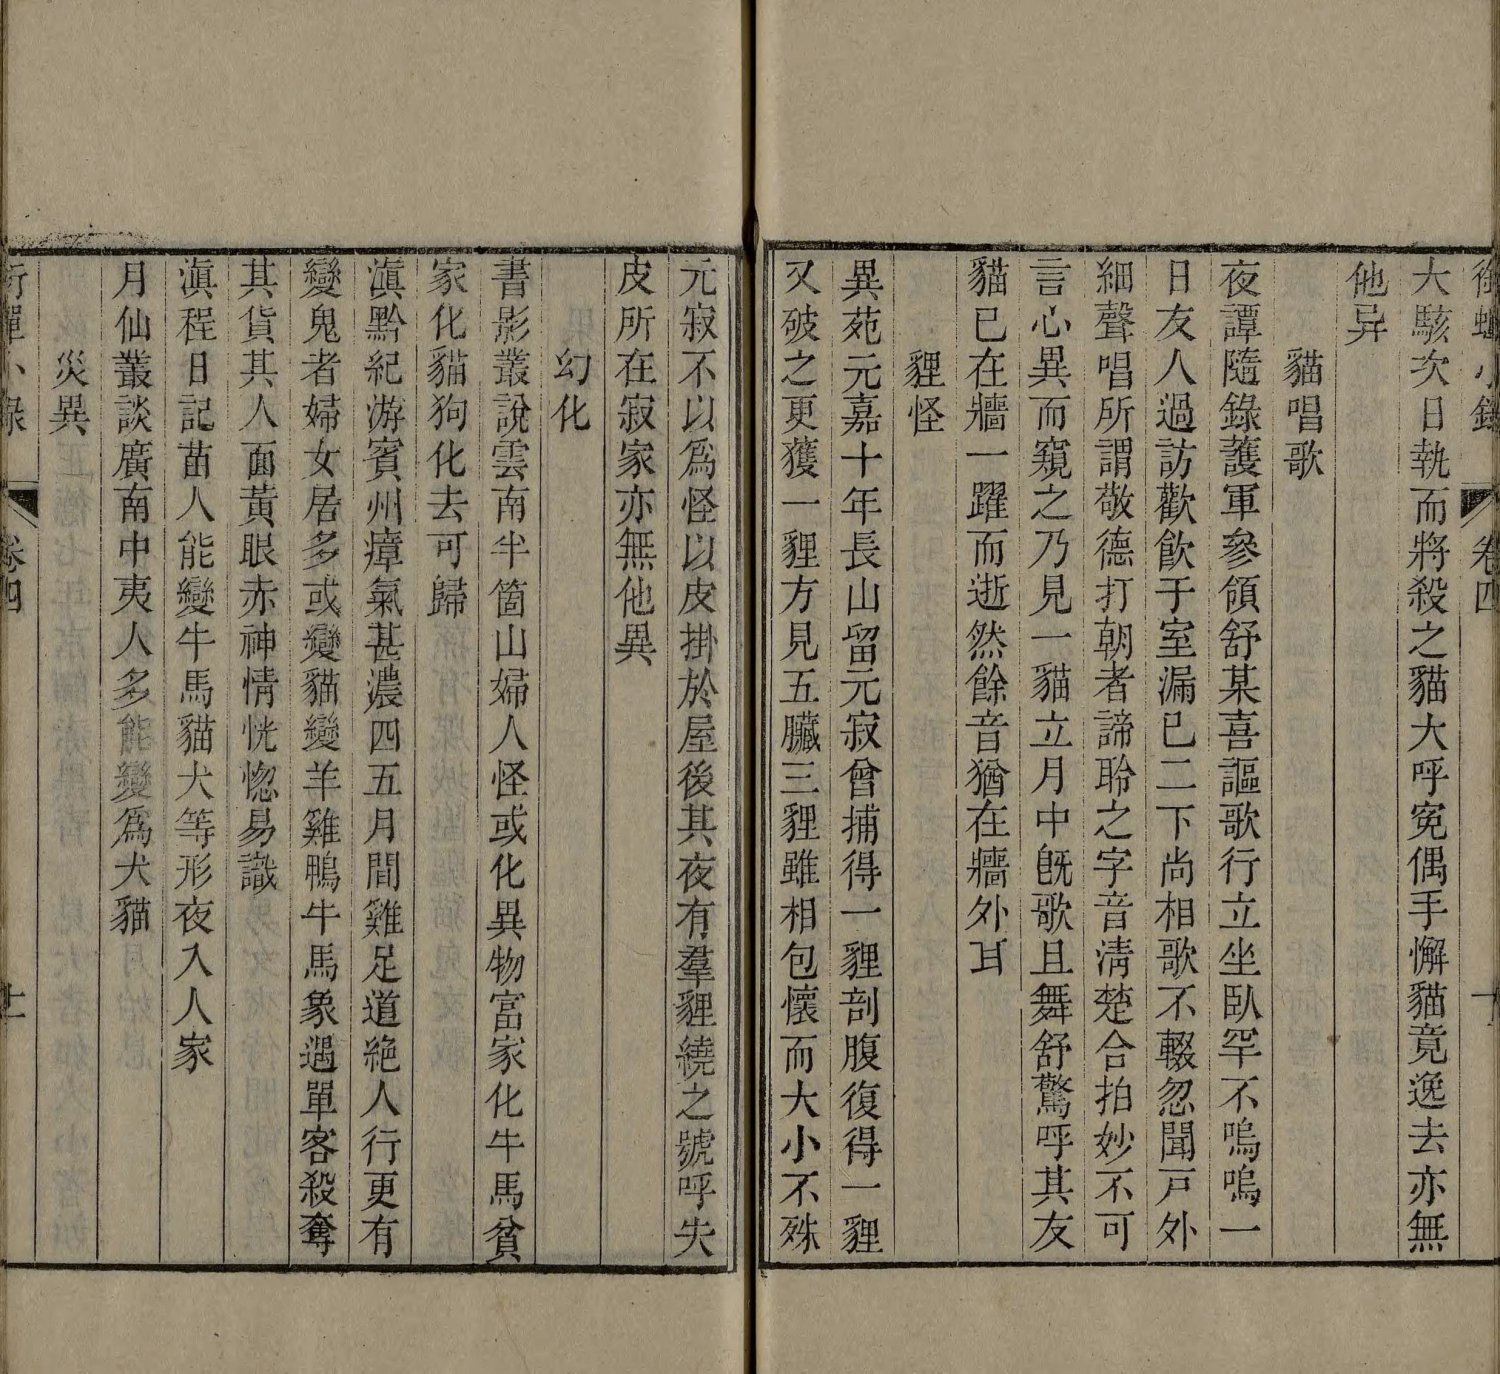 銜蟬小錄 卷四 十
大駭次日執而將殺之貓大呼冤偶手懈貓竟逸去亦無
他异
貓唱歌
夜譚隨錄護軍參領舒某喜謳歌行立坐臥罕不嗚嗚一
日友人過訪歡飲于室漏已二下尚相歌不輟忽聞戸外
細聲唱所謂敬德打朝者諦聆之字音淸楚合拍妙不可
言心異而窺之乃見一貓立月中旣歌且舞舒驚呼其友
貓已在牆一躍而逝然餘音猶在牆外耳
貍怪
異苑元嘉十年長山留元寂曾捕得一貍剖腹復得一貍
又破之更獲一貍方見五臟三貍雖相包懷而大小不殊
元寂不以爲怪以皮掛於屋後其夜有羣貍繞之號呼失
皮所在寂家亦無他異
幻化
書影叢說雲南半箇山婦人怪或化異物富家化牛馬貧
家化貓狗化去可歸
滇黔紀游賓州瘴氣甚濃四五月間雞足道絶人行更有
變鬼者婦女居多或變貓變羊雞鴨牛馬象遇單客殺奪
其貨其人面黃眼赤神情恍惚易識
滇程日記苗人能變牛馬貓犬等形夜入人家
月仙叢談廣南中夷人多能變爲犬貓
災異
銜蟬小錄 卷四 十